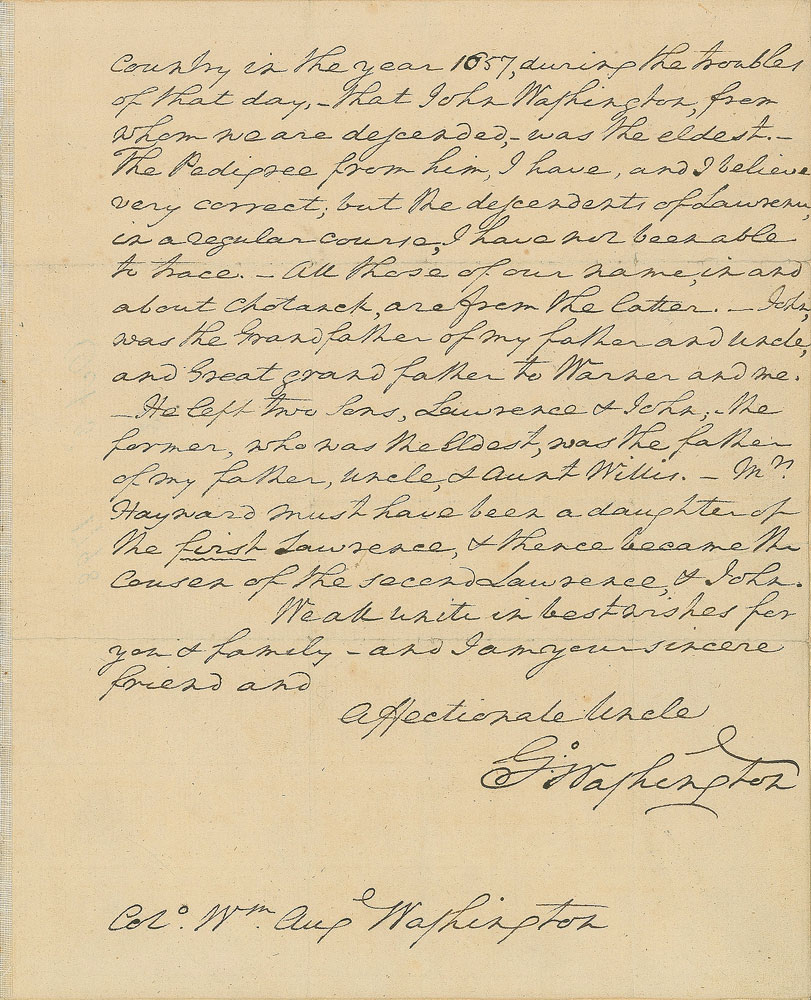 Country in the year 1657, during the troubles
of that day, - that John Washington, from
whom we are descended, - was the eldest. -
The Pedigree from him, I have, and I believe
very correct; but the descendents of Lawrence,
in a regular course, I have not been able
to trace. - All those of our name, in and
about Chotanck, are from the latter. - John,
was the Grandfather of my father and Uncle,
and Great grandfather to Warner and me.
- He left two Sons, Lawrence & John; the
former, who was the Eldest, was the father
of my father, Uncle, & Aunt Willis. - Mrs.
Hayward must have been a daughter of
the first Lawrence, & thence became the
Cousen of the second Lawrence, & John.
We all unite in best wishes for
you & family - and I am your sincere
friend and
Affectionate Uncle
Go: Washington
Colo. Wm. Auge Washington